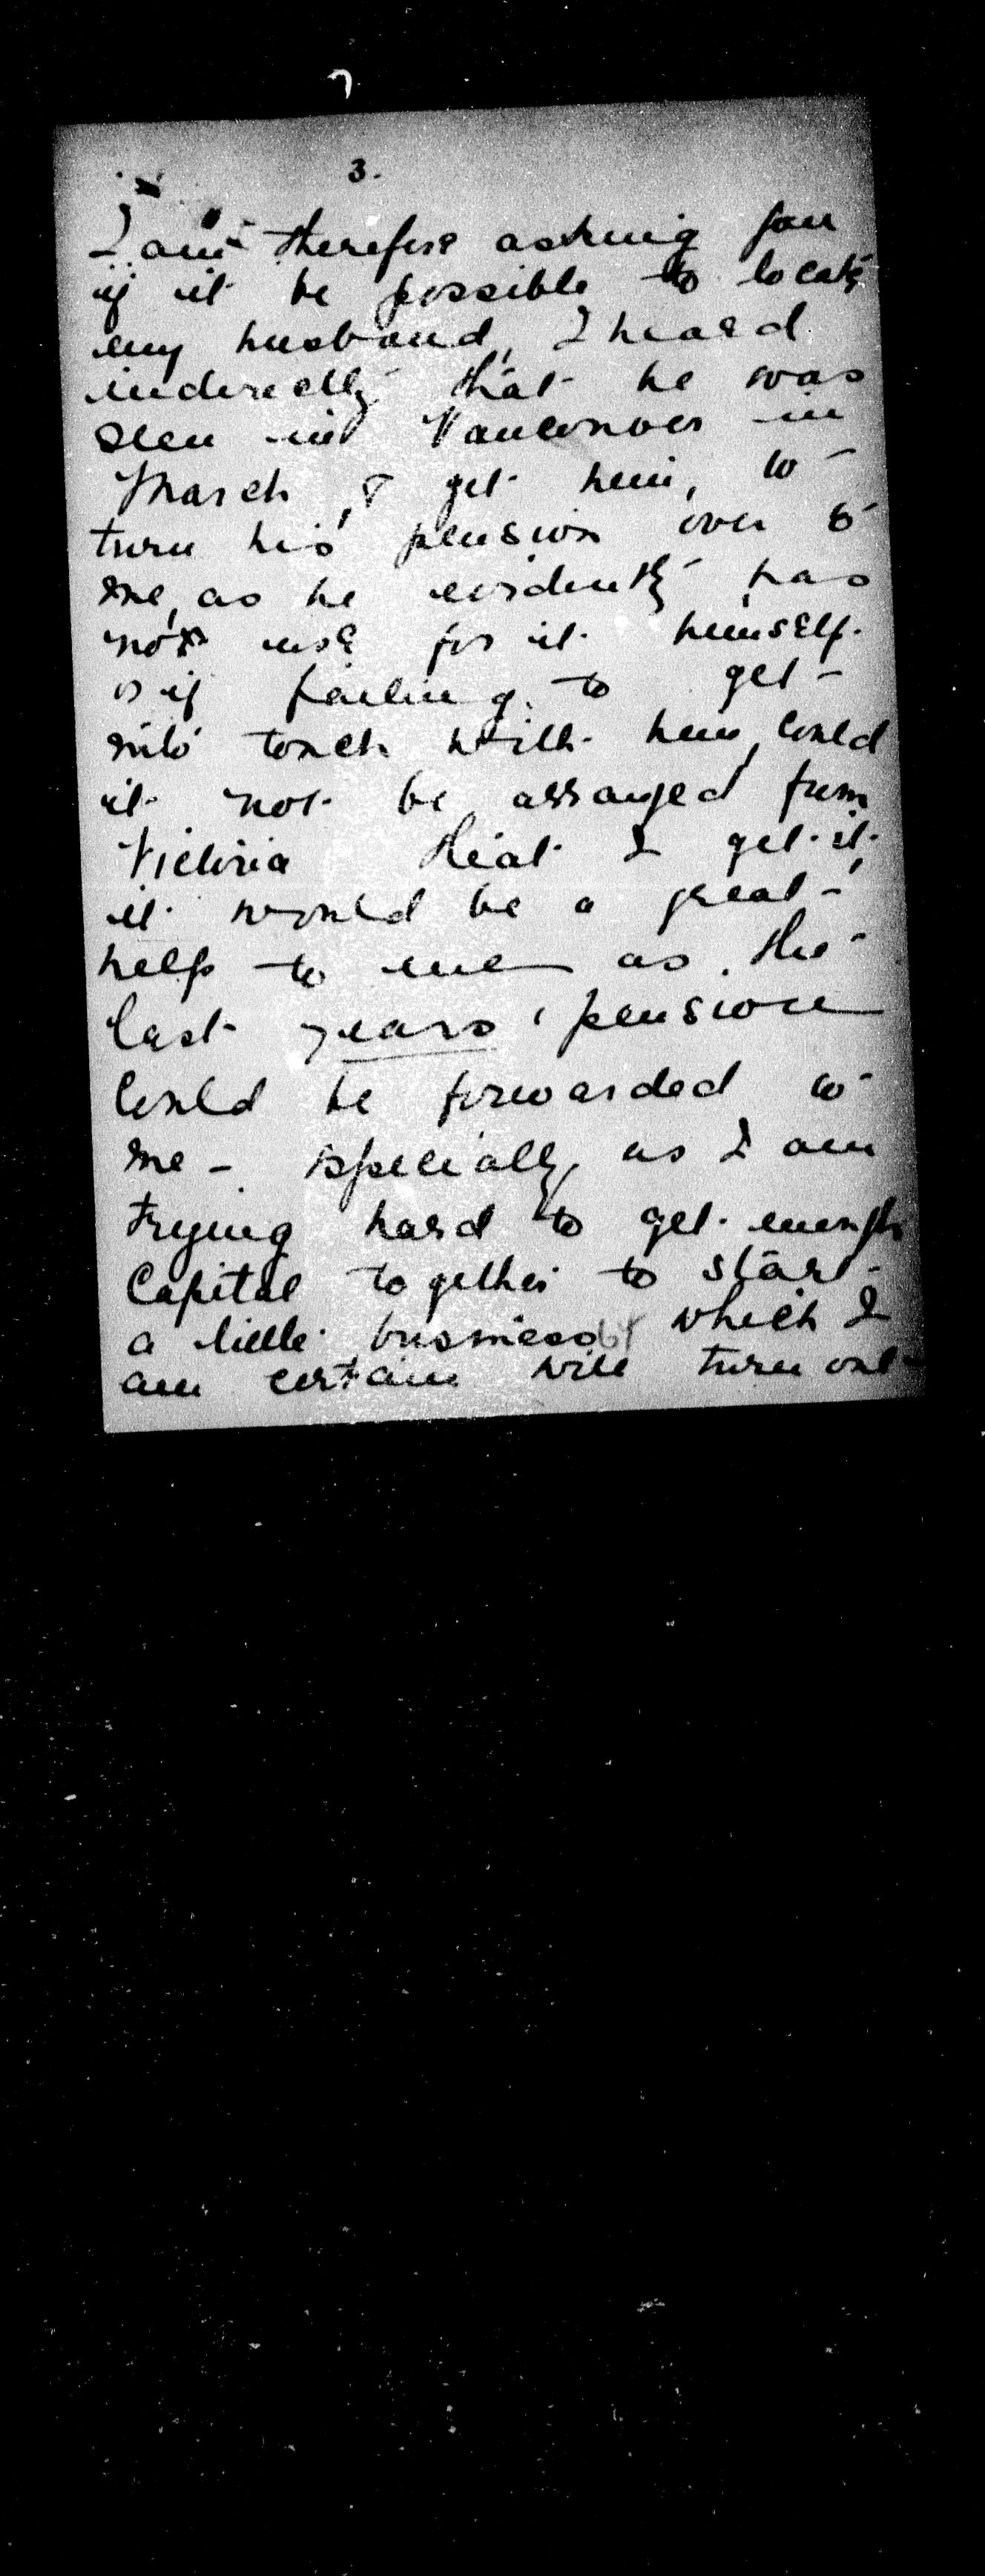 3.
I am therefore asking you
if it be possible to locate
my husband, I heard
indirectly that he was
seen in Vancouver in
March, & get him, to
turn his pension over to
me, as he evidently has
not use for it himself.
or if failing to get
into touch with him, could
it not be arranged from
Victoria that I get it,
it would be a great
help to me as the
last years' pension
could be forwarded to
me - especially, as I am
trying hard to get enough
Capital together to start
a little business which I
am certain will turn out